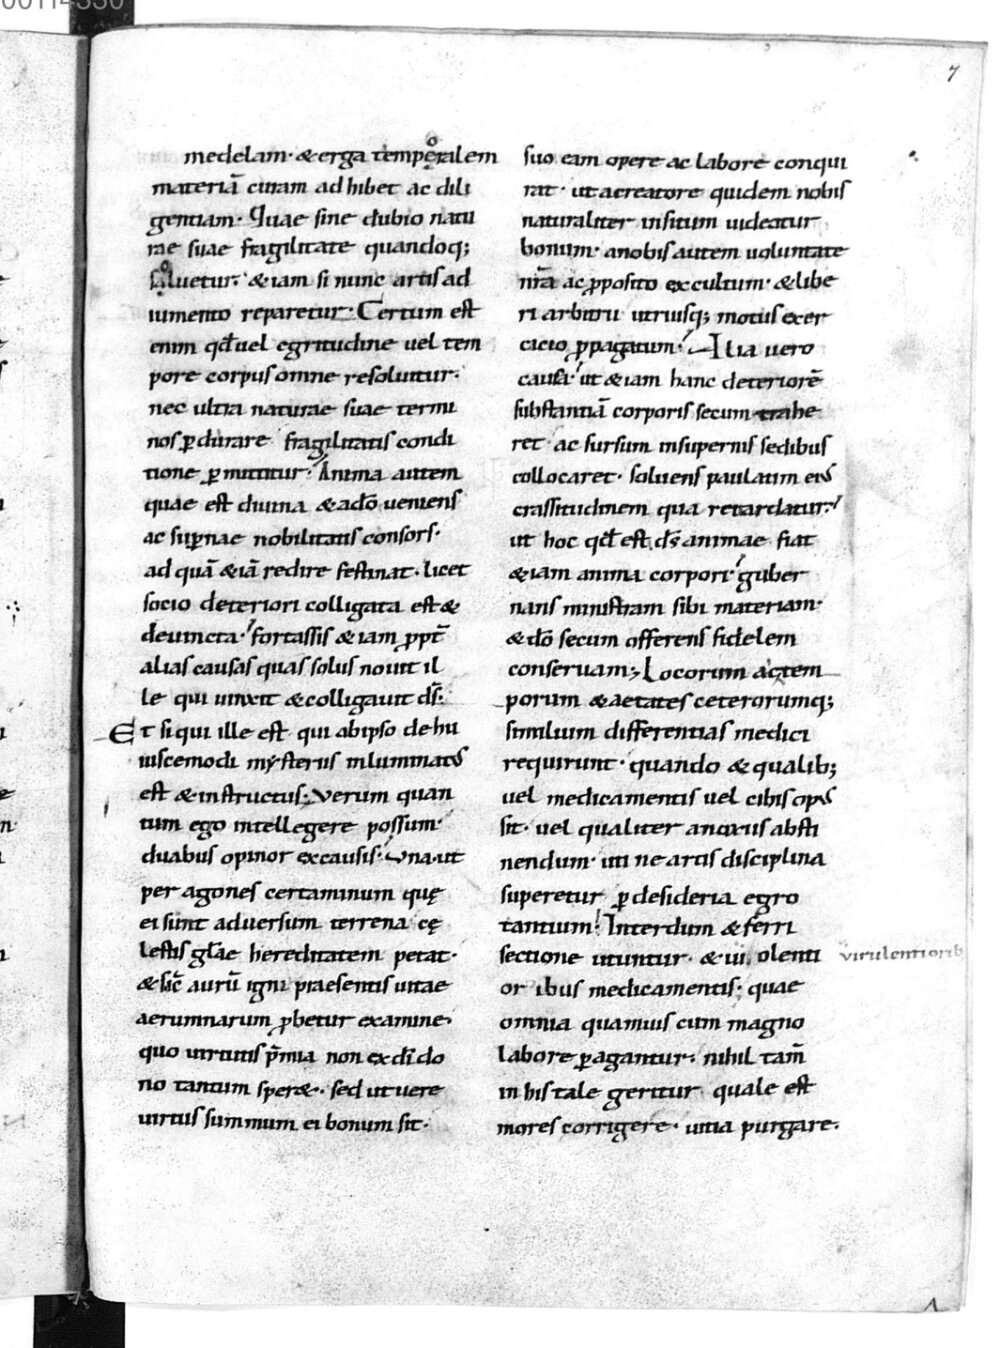 7
medelam· & erga temperalem
materiā curam adhibet ac dili
gentiam· Quae sine dubio natu
rae suae fragilitate quandoq;
saluetur· & iam si nunc artis ad
iumento reparetur· Certum est
enim qđ uel egritudine uel tem
pore corpus omne resoluitur·
nec ultra naturae suae termi
nos ꝑdurare fragilitatis condi
tione ꝑmittitur· Anima autem
quae est diuina & a dō ueniens
ac suꝑnae nobilitatis consors·
ad quā & iā redire festinat· licet
socio deteriori colligata est &
deuincta· fortassis & iam ꝓpt̄
alias causas quas solus nouit il
le qui uinxit & colligauit d̄s·
Et si qui ille est qui ab ipso de hu
iuscemodi mysteriis inluminatꝰ
est & instructus· Verum quan
tum ego intellegere possum·
duabus opinor ex causis· Una ut
per agones certaminum quę
ei sunt aduersum terrena cę
lestis gl̄ae hereditatem petat·
& sic̄ aurū igni praesentis uitae
aerumnarum ꝓbetur examine·
quo uirtutis p̄mia non ex d̄i do
no tantum sper&· sed ut uere
uirtus summum ei bonum sit·
suo eam opere ac labore conqui
rat· ut a creatore quidem nobis
naturaliter insitum uideatur
bonum· a nobis autem uoluntate
nr̄a ac ꝓposito excultum· & libe
ri arbitrii utriusq; motus exer
cicio ꝓpagatum· Ilia uero
causa· ut & iam hanc deteriorē
substantiā corporis secum trahe
ret· ac sursum in supernis sedibus
collocaret· soluens paulatim eiꝰ
crassitudinem qua retardatur·
ut hoc qđ est d̄s animae fiat
& iam anima corpori· guber
nans ministram sibi materiam·
& dō secum offerens fidelem
conseruam·, Locorum ac tem
porum & aetates ceterorumq;
similium differentias medici
requirunt· quando & qualib;
uel medicamentis uel cibis opꝰ
sit· uel qualiter a noxiis absti
nendum· uti ne artis disciplina
superetur ꝑ desideria egro
tantium· Interdum & ferri
sectione utuntur· & ui olenti
or ibus medicamentis· quae
virulentiorib
omnia quamuis cum magno
labore ꝑagantur· nihil tam̄
in his tale geritur quale est
mores corrigere· uitia purgare·